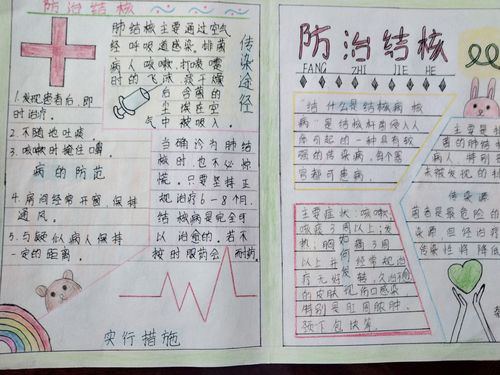 防治结核
肺结核主要通过空气
经呼吸道感染，排菌
病人咳嗽、打喷嚏
时的飞沫
后含菌的
尘埃在空
气中被吸入。
传染途径
1.发现患者后，即
时治疗。
2.不随地吐痰。
3.咳嗽时掩住口鼻。
病的防范
4.房间经常开窗，保持
通风。
5.与疑似病人保持
一定的距离。
当确诊为肺结
核时，也不必惊
慌。只要坚持正
规治疗6-8个月，
结核病是完全可
以治愈的。若不
按时服药会耐药。
实行措施
防治结核
FANG ZHI JIE HE
"结 什么是结核病 核
病"是结核杆菌侵入人
体引起的一种具有较
强的传染病，每个器
官都可患病。
主要症状：咳嗽、
咳痰3周以上；发
热；胸
以上并 经常规治
疗无好转；久治愈
的皮肤
特别是肛周脓肿。
预下包块等。
主要是
菌的肺结
病人，特别
去被发现的
传染源
菌者是最危险的
染源，但经治疗
传染性将降低